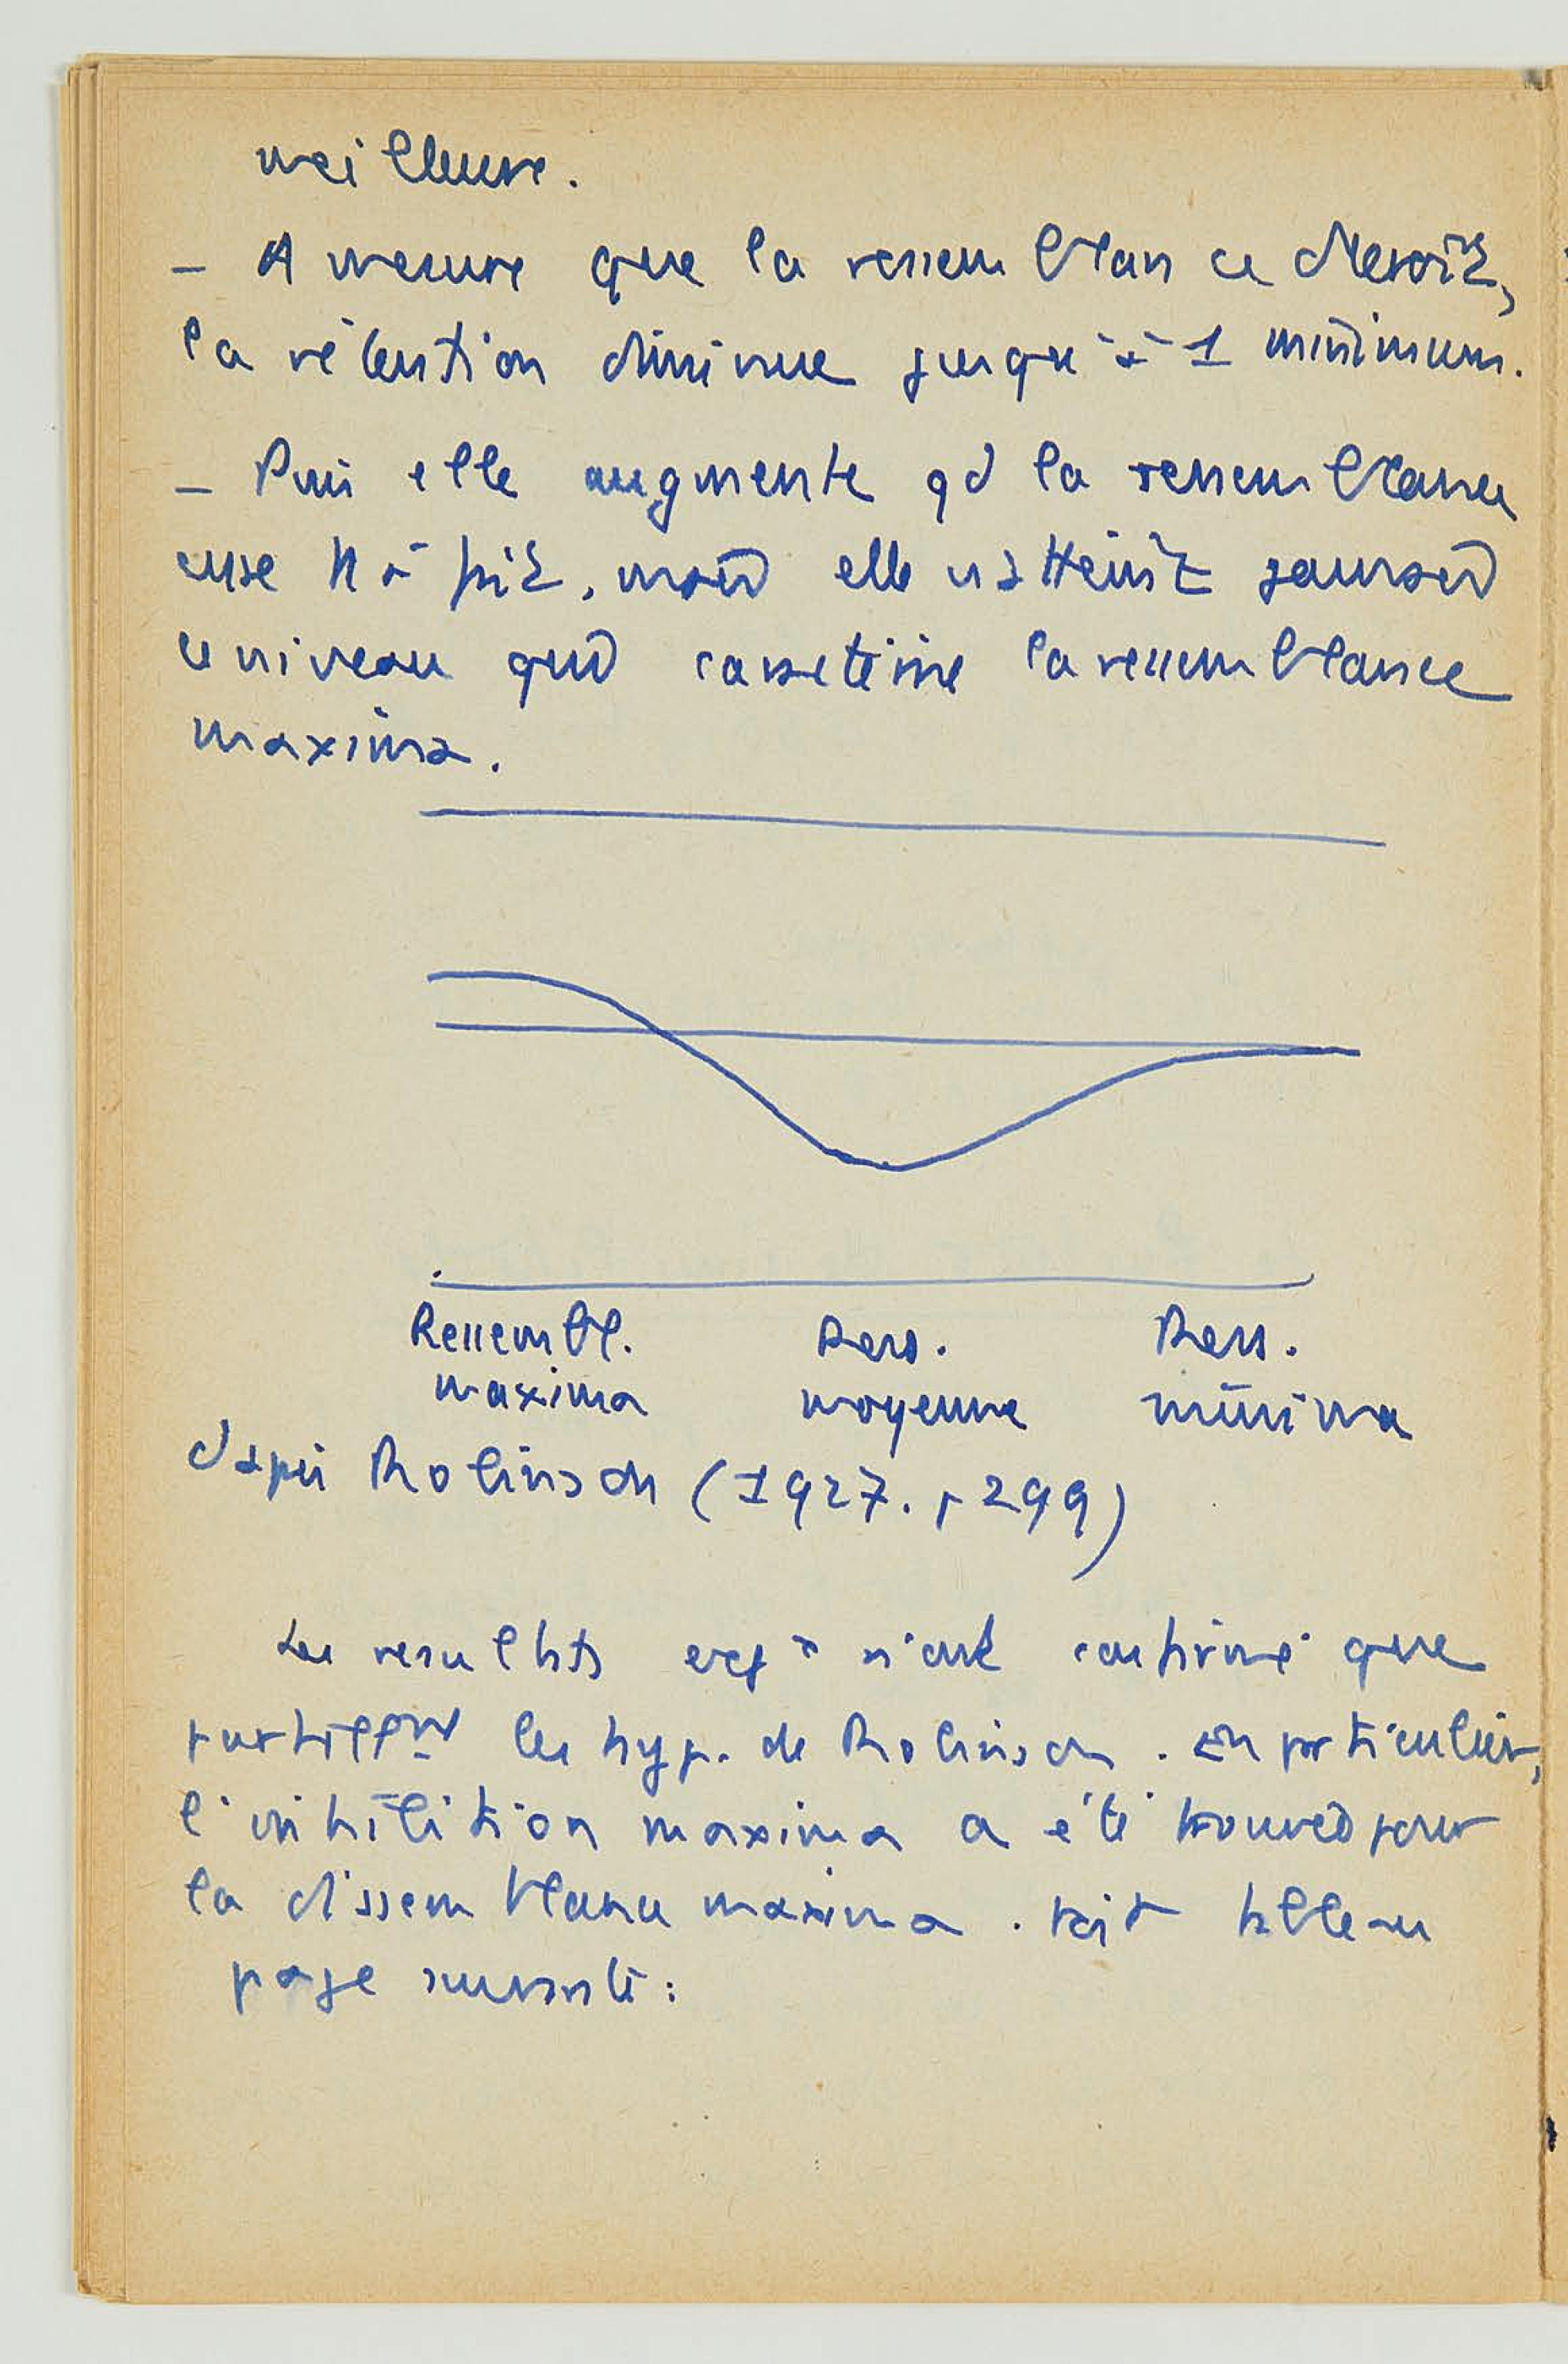 meilleure.
- A mesure que la ressemblance décroît,
la rétention diminue jusqu'à 1 minimum.
- Puis elle augmente qd la ressemblance
elle n'atteint jamais
ce niveau qui caractérise la ressemblance
maxima.
Ressembl. Ress. Ress.
maxima moyenne minima
d'après Robinson (1927. p 299)
Les resultats exp x n'ont confirmé que
partiellnt les hyp. de Robinson. En particulier,
l'inhibition maxima a été trouvée pour
la dissemblance maxima. tableau
page suivante: